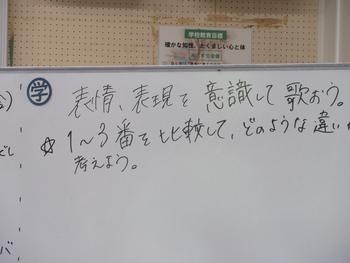 学校教育目標
確かな知性、たくましい心と体
学 表情、表現を意識して歌おう。
☆ 1〜3番を比較して、どのような違いか
考えよう。